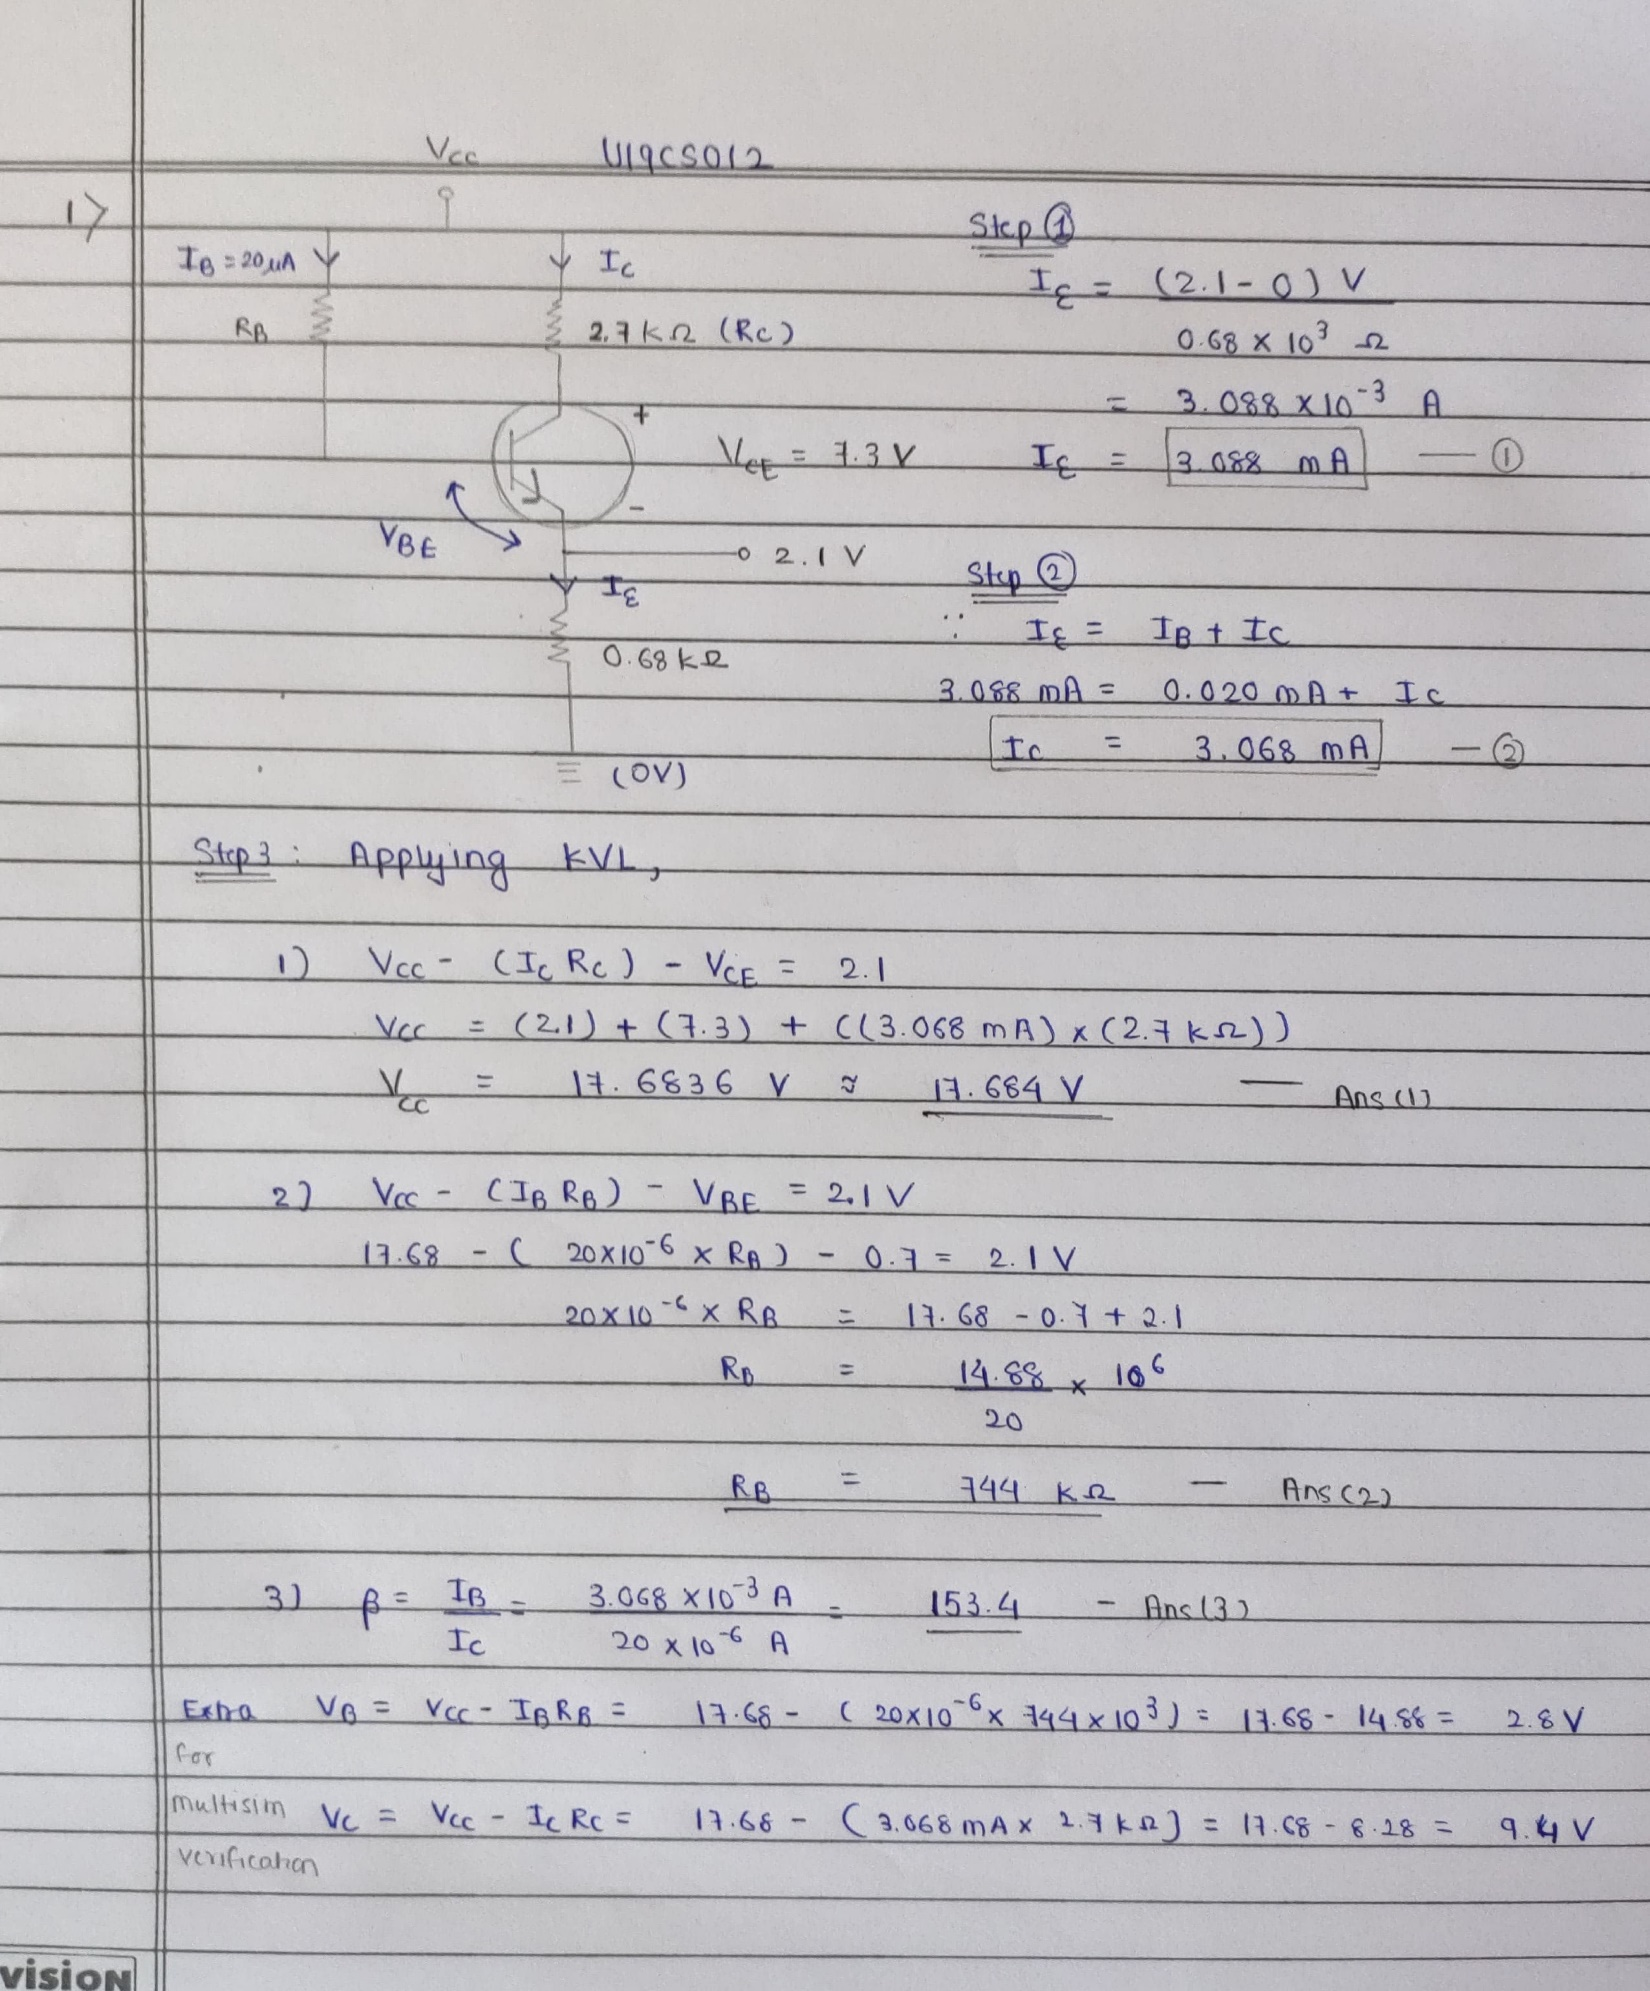 Vcc U19CS012
1)
IB = 20μA
IC
RB
2.7 KΩ (RC)
+
VCE = 7.3 V
-
VBE
2.1 V
IE
0.68 KΩ
(0V)
Step ①
IE = (2.1 - 0) V
0.68 × 10³ Ω
= 3.088 × 10⁻³ A
IE = 3.088 mA — ①
Step ②
∵ IE = IB + IC
3.088 mA = 0.020 mA + IC
IC = 3.068 mA — ②
Step 3 : Applying KVL,
1) VCC - (IC RC) - VCE = 2.1
VCC = (2.1) + (7.3) + ((3.068 mA) × (2.7 KΩ))
VCC = 17.6836 V ≈ 17.684 V — Ans (1)
2) VCC - (IB RB) - VBE = 2.1 V
17.68 - ( 20×10⁻⁶ × RB ) - 0.7 = 2.1 V
20×10⁻⁶ × RB = 17.68 - 0.7 + 2.1
RB = 14.88 × 10⁶
20
RB = 744 KΩ — Ans (2)
3) β = IB = 3.068 ×10⁻³ A = 153.4 - Ans (3)
IC 20 × 10⁻⁶ A
Extra VB = VCC - IBRB = 17.68 - ( 20×10⁻⁶ × 744 × 10³ ) = 17.68 - 14.88 = 2.8 V
for
multisim VC = VCC - IC RC = 17.68 - ( 3.068 mA × 2.7 KΩ ) = 17.68 - 8.28 = 9.4 V
verification
vision